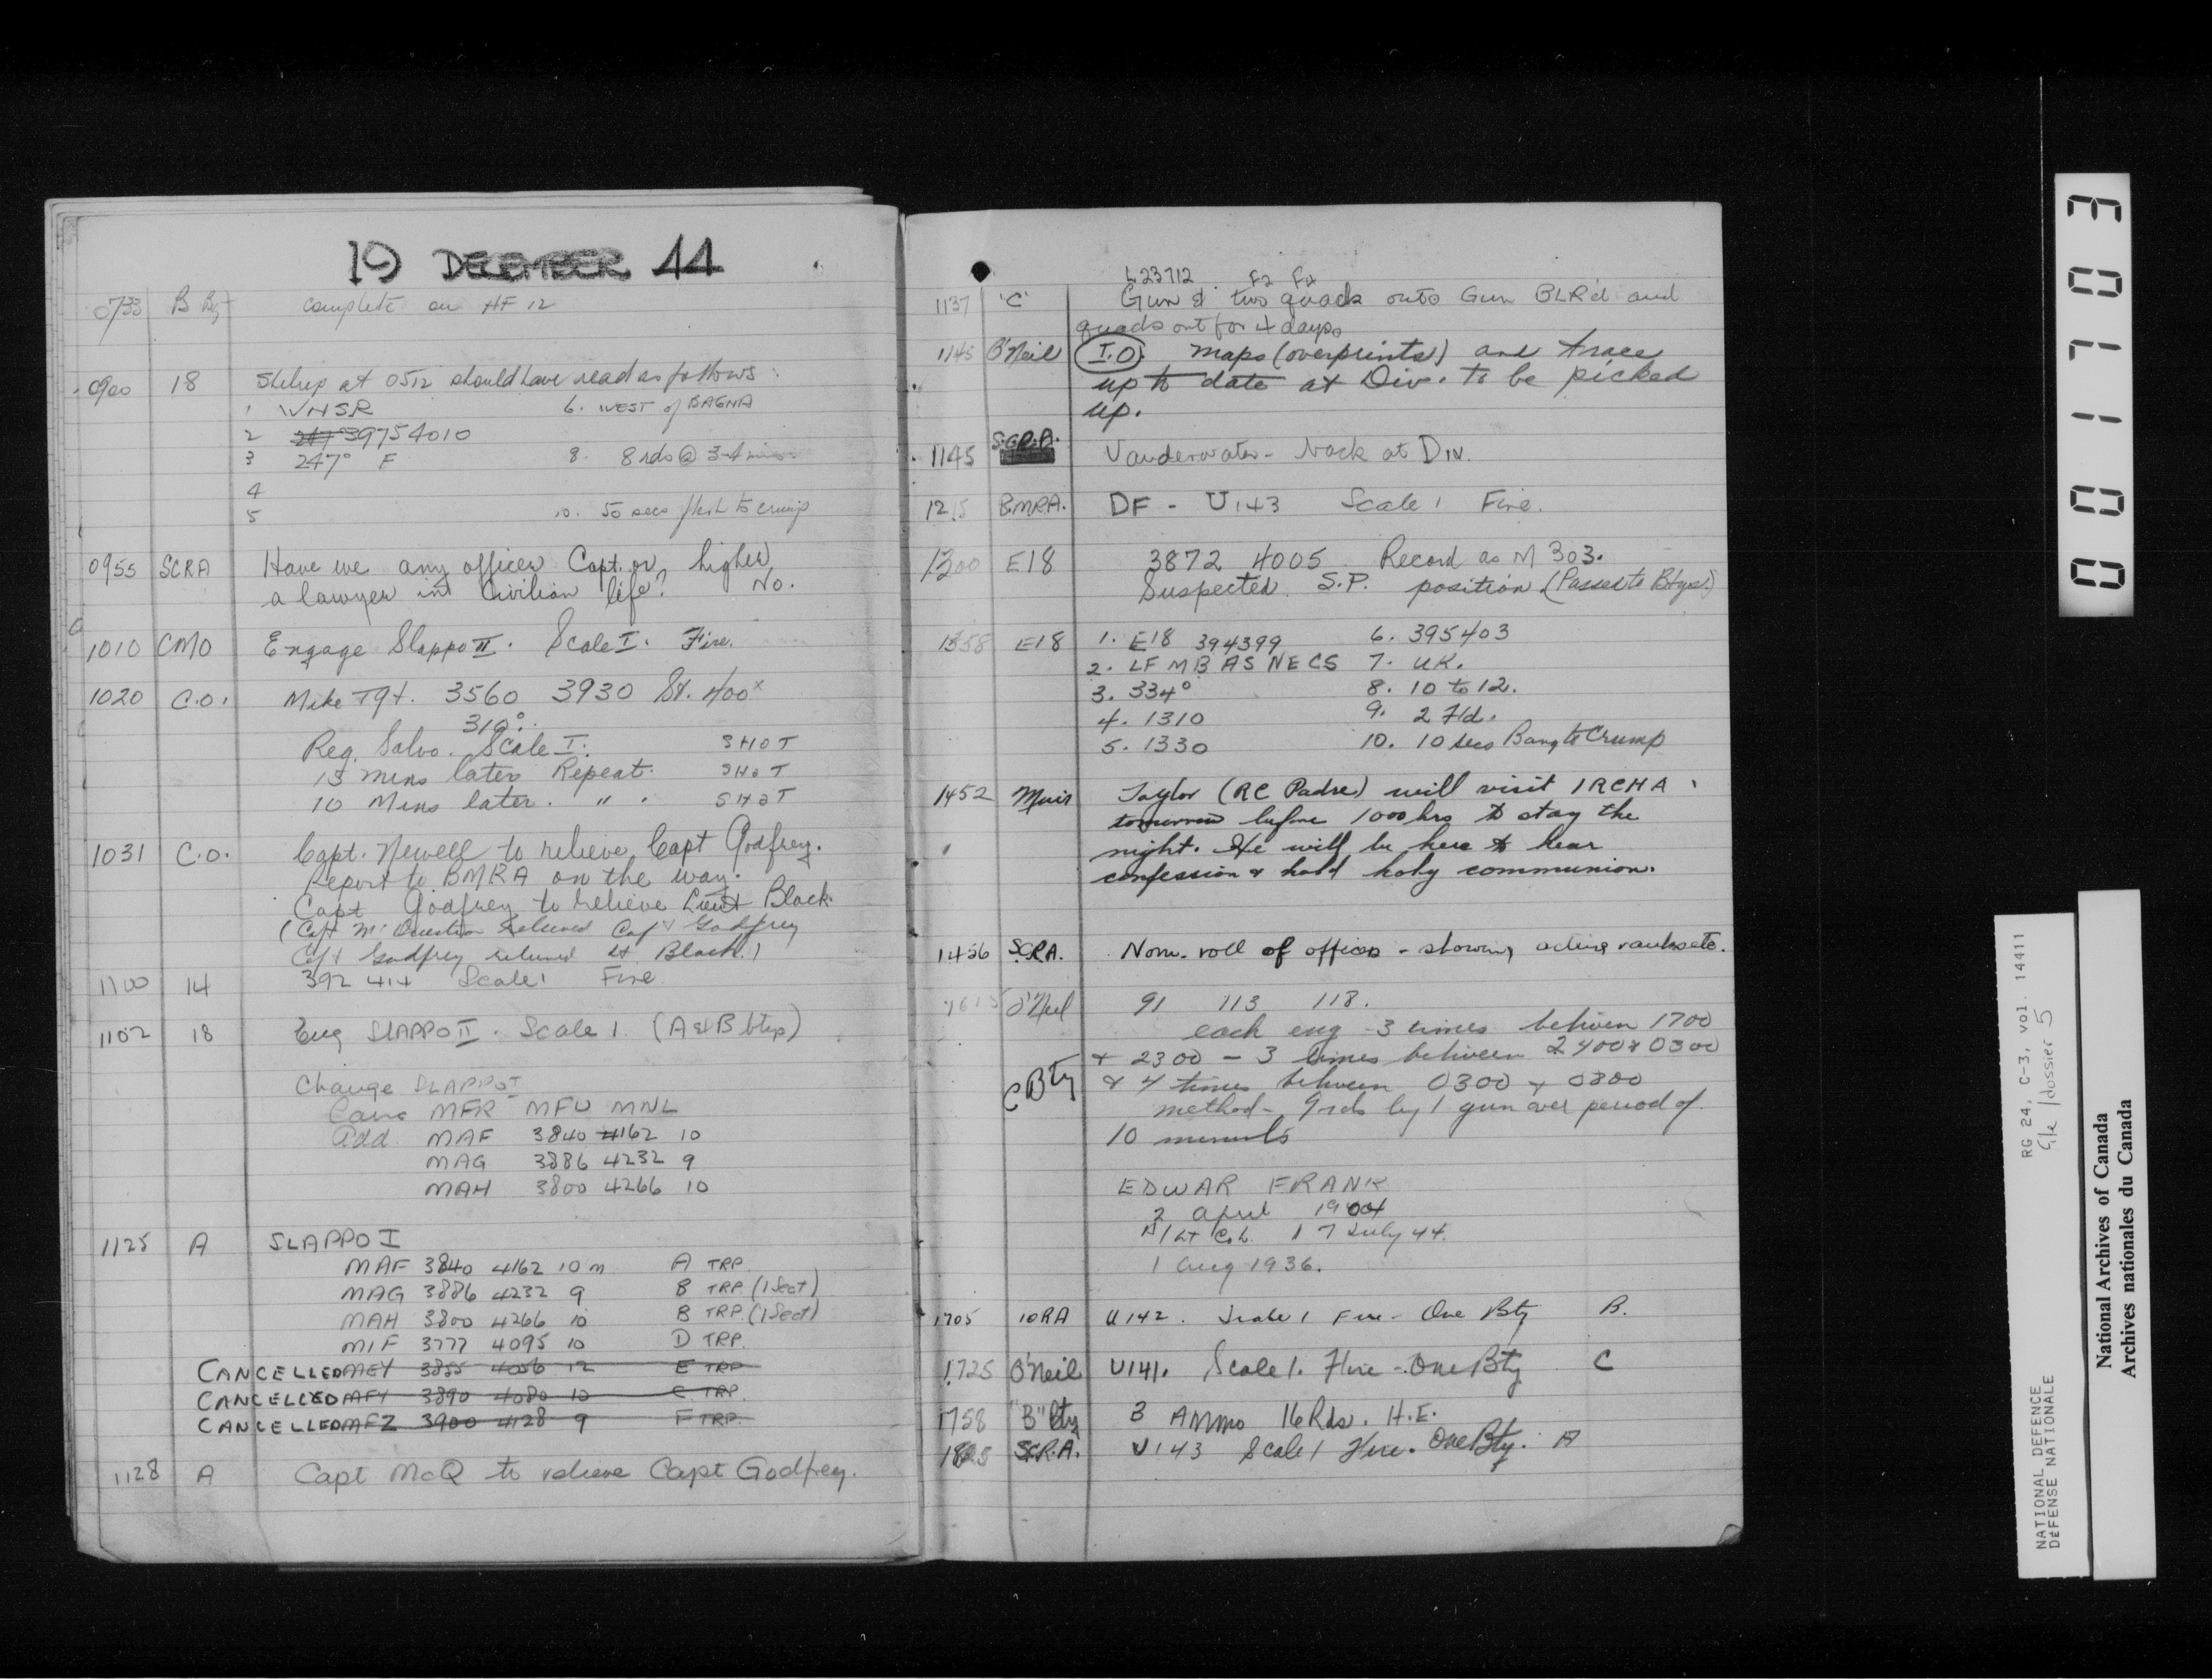 19 DECEMBER 44
0733 B Bty complete on HF 12
0900 18 Shelrep at 0512 should have read as follows:
1 VHSR 6. WEST of BAGNA
2 247 39754010
3 247° F 8. 8 rds @ 3-4 mins.
4
5 10. 50 secs flash to crump
0955 SCRA Have we any officer Capt. or higher
a lawyer in Civilian life? No.
1010 CMO Engage Slappo II. Scale I. Fire.
1020 C.O. Mike Tgt. 3560 3930 St. 400x
310°.
Reg. Salvo. Scale I. SHOT
15 mins later Repeat. SHOT
10 Mins later. " . SHOT
1031 C.O. Capt. Newell to relieve Capt Godfrey.
Report to BMRA on the way.
Capt Godfrey to relieve Lieut Black.
(Capt Mc Question relieved Capt Godfrey
Capt Godfrey relieved Lt Black.)
1100 14 392 414 Scale 1 Fire
1102 18 Eng SLAPPO II. Scale 1. (A & B btys)
Change SLAPPO I
Canc MFR MFU MNL
Add MAF 3840 4162 10
MAG 3886 4232 9
MAH 3800 4266 10
1125 A SLAPPO I
MAF 3840 4162 10 m A TRP
MAG 3886 4232 9 B TRP. (1 Sect)
MAH 3800 4266 10 B TRP. (1 Sect)
MIF 3777 4095 10 D TRP.
CANCELLED MEY 3855 4056 12 E TRP
CANCELLED MFY 3890 4080 10 C TRP.
CANCELLED MFZ 3900 4128 9 F TRP.
1128 A Capt McQ to relieve Capt Godfrey.
L23712 F2 F2
1137 'C' Gun & two quads onto Gun BLR'd and
quads out for 4 days.
1145 O'Neil I.O. maps (overprints) and trace
up to date at Div. to be picked
up.
1145 S.C.R.A. Vanderwater - back at Div.
1215 B.M.R.A. DF - U143 Scale 1 Fire.
1300 E18 3872 4005 Record as M 303.
Suspected S.P. position. (Passed to Btys.)
1358 E18 1. E18 394399 6. 395403
2. LF MB AS NE CS 7. UK.
3. 334° 8. 10 to 12.
4. 1310 9. 2 Fld.
5. 1330 10. 10 secs Bang to Crump
1452 Muir Taylor (RC Padre) will visit 1 RCHA
tomorrow before 1000 hrs to stay the
night. He will be here to hear
confession & hold holy communion.
1456 SCRA. Nom. roll of officers - showing acting ranks etc.
1615 O'Neil 91 113 118.
each eng 3 times between 1700
+ 2300 - 3 times between 2400 & 0300
C Bty & 4 times between 0300 + 0800
method - 9 rds by 1 gun over period of
10 minuts
EDWAR FRANK
2 april 1904
A/Lt Col. 17 July 44.
1 Aug 1936.
1705 10RA U142. Scale 1 Fire - One Bty B.
1725 O'Neil U141. Scale 1. Fire - One Bty C
1758 "B" Bty B Ammo 16 Rds. H.E.
S.C.R.A. U143 Scale 1 Fire. One Bty. A
0001703
RG 24, C-3, vol. 14411
File / dossier 5
NATIONAL DEFENCE
DÉFENSE NATIONALE
National Archives of Canada
Archives nationales du Canada